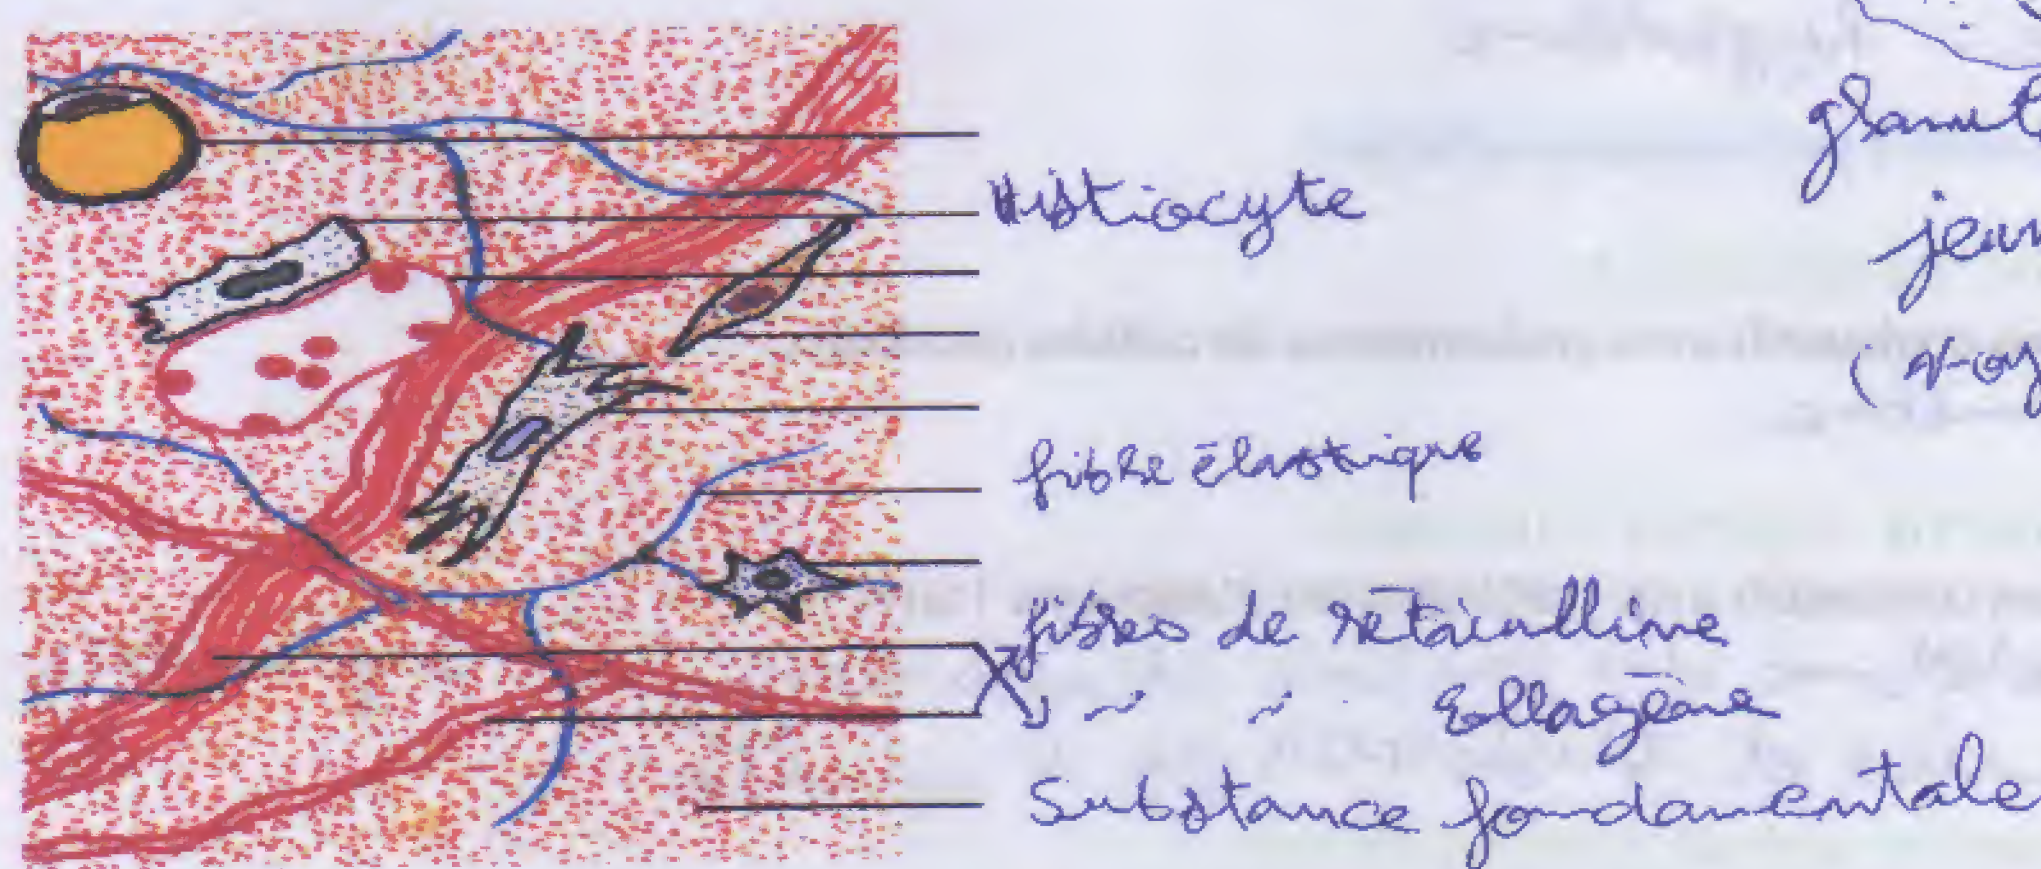 Histiocyte
jeun
fibre élastique
fibres de rétainlline
" " Collagène
Substance fondamentale